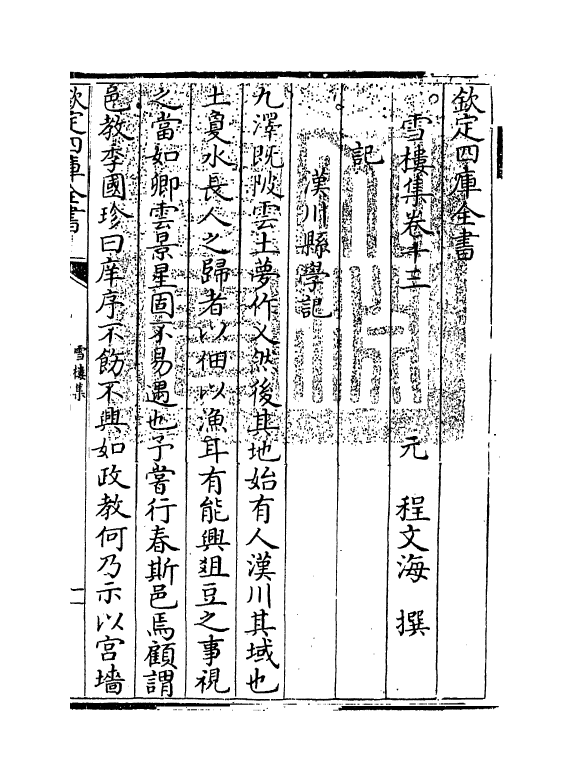 欽定四庫全書
雪樓集卷十三
元 程文海 撰
記
漢川縣學記
九澤既陂雲土夢作乂然後其地始有人漢川其域也
土夐水長人之歸者以佃以漁耳有能興俎豆之事視
之當如卿雲景星固不易遇也予嘗行春斯邑焉顧謂
邑教李國珍曰庠序不飭不興如政教何乃示以宫墻
欽定四庫全書
雪樓集